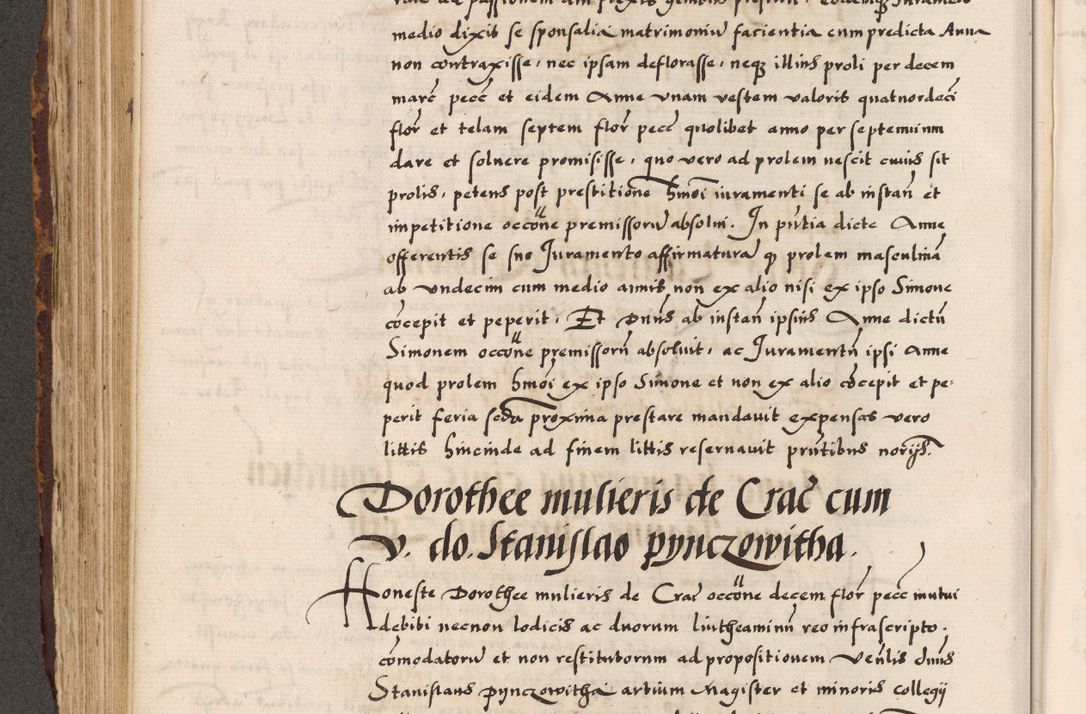 medio dixit se sponsalia matrimoniū facientia cum predicta Anna
non cōntraxisse, nec ipsam deflorasse, neqȝ illius proli per decem
marc̄ pecc̄ et eidem Anne vnam vestem valoris quatuordecī
flor̄ et telam septem flor̄ pecc̄ quolibet anno per septennium
dare et soluere promisisse, quo vero ad prolem nescit cuius sit
prolis, petens post prestitione hmōi iuramenti se ab instan̄ et
impetitione occōne premissorū absolui. In pn̄tia dicte Anne
offerentis se suo Iuramento affirmaturā qȝ prolem masculinā
ab vndecim cum medio annis non ex alio nisi ex ipso Simone
cōcepit et peperit, Et Dn̄us ab instan̄ ipsius Anne dictū
Simonem occōne premissorū absoluit, ac Iuramentū ipsi Anne
quod prolem hmōi ex ipso Simone et non ex alio cōcepit et pe-
perit feria scd̄a proxima prestare mandauit expensas vero
littis hincinde ad finem littis reseruauit pn̄tibus norijs.
Dorothee mulieris de Crac̄ cum
V. do. Stanislao pynczowitha.
Honeste Dorothee mulieris de Crac̄ occōne decem flor̄ pecc̄ mutui
debiti necnon lodicis ac duorum lintheaminū reo infrascripto
cōmodatorū et non restitutorum ad propositionem Ven̄lis dn̄us
Stanislaus pynczowitha artium Magister et minoris collegij